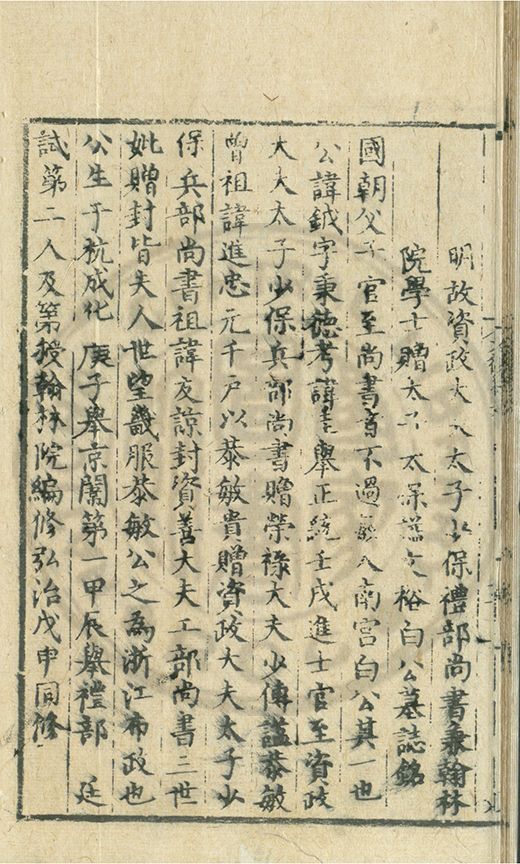 明故資政大夫太子少保禮部尚書兼翰林
院學士贈太子太保謚文裕白公墓誌銘
國朝父子官至尚書者不過數人南宮白公其一也
公諱鉞字秉德考諱圭舉正統壬戌進士官至資政
大夫太子少保兵部尚書贈榮祿大夫少傅謚恭敏
曾祖諱進忠元千戶以恭敏貴贈資政大夫太子少
保兵部尚書祖諱友諒封資善大夫工部尚書三世
妣贈封皆夫人世望畿服恭敏公之為浙江布政也
公生于杭成化庚子舉京闈第一甲辰舉禮部 廷
試第二人及第授翰林院編修弘治戊申同修